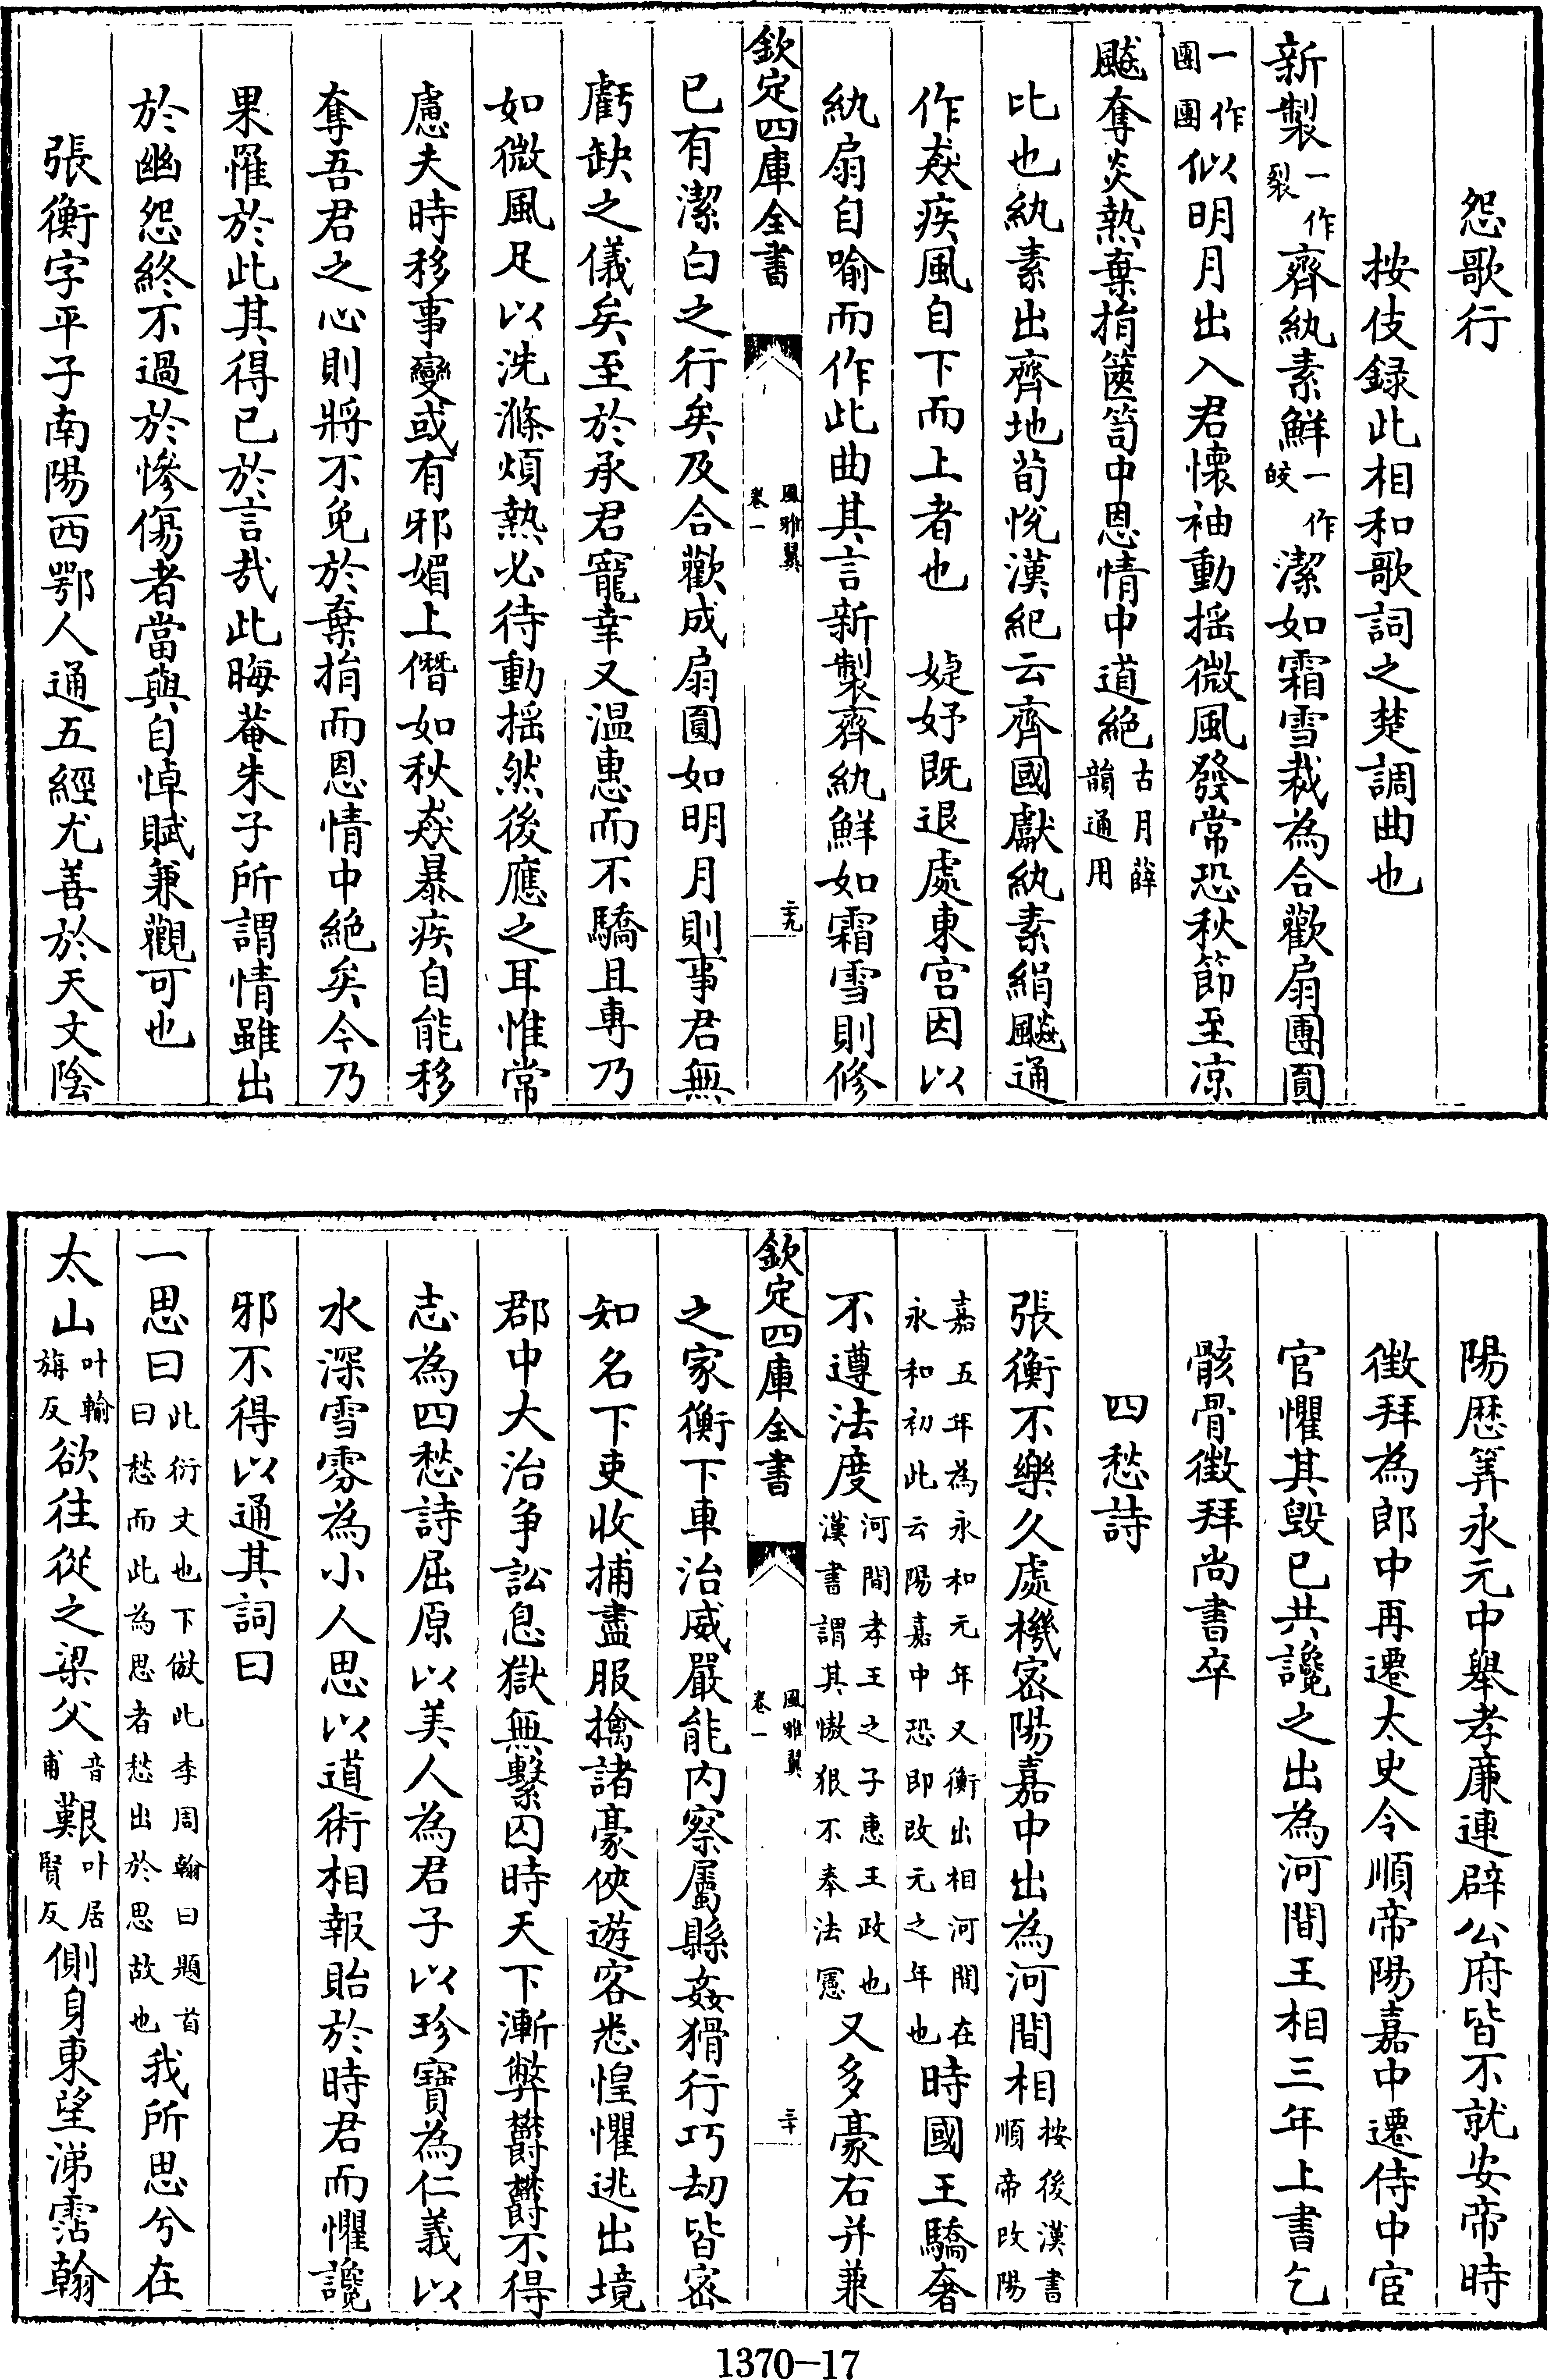 怨歌行
按伎録此相和歌詞之楚調曲也
新製一作裂齊紈素鮮一作皎潔如霜雪裁為合歡扇團圓
一作團團似明月出入君懷袖動揺微風發常恐秋節至凉
飇奪炎熱棄捐篋笥中恩情中道絶古月薛韻通用
比也紈素出齊地荀悅漢紀云齊國獻紈素絹飇通
作猋疾風自下而上者也　婕妤既退處東宫因以
紈扇自喻而作此曲其言新製齊紈鮮如霜雪則修
欽定四庫全書　風雅翼卷一　二十九
已有潔白之行矣及合歡成扇圓如明月則事君無
虧缺之儀矣至於承君寵幸又温惠而不驕且專乃
如微風足以洗滌煩熱必待動揺然後應之耳惟常
慮夫時移事變或有邪媚上僭如秋猋暴疾自能移
奪吾君之心則將不免於棄捐而恩情中絶矣今乃
果罹於此其得已於言哉此晦菴朱子所謂情雖出
於幽怨終不過於慘傷者當與自悼賦兼觀可也
張衡字平子南陽西鄂人通五經尤善於天文陰
陽厯筭永元中舉孝廉連辟公府皆不就安帝時
徴拜為郎中再遷太史令順帝陽嘉中遷侍中宦
官懼其毁已共讒之出為河間王相三年上書乞
骸骨徴拜尚書卒
四愁詩
張衡不樂久處機密陽嘉中出為河間相按後漢書順帝改陽
嘉五年為永和元年又衡出相河間在永和初此云陽嘉中恐即改元之年也時國王驕奢
不遵法度河間孝王之子惠王政也漢書謂其慠狠不奉法憲又多豪右并兼
欽定四庫全書　風雅翼卷一　三十
之家衡下車治威嚴能内察屬縣姦猾行巧刼皆密
知名下吏收捕盡服擒諸豪俠遊客悉惶懼逃出境
郡中大治争訟息獄無繫囚時天下漸弊欝欝不得
志為四愁詩屈原以美人為君子以珍寶為仁義以
水深雪雰為小人思以道術相報貽於時君而懼讒
邪不得以通其詞曰
一思曰此衍文也下倣此李周翰曰題首曰愁而此為思者愁出於思故也我所思兮在
太山叶輸旃反欲往從之梁父音甫艱叶居賢反側身東望涕霑翰
1370—17